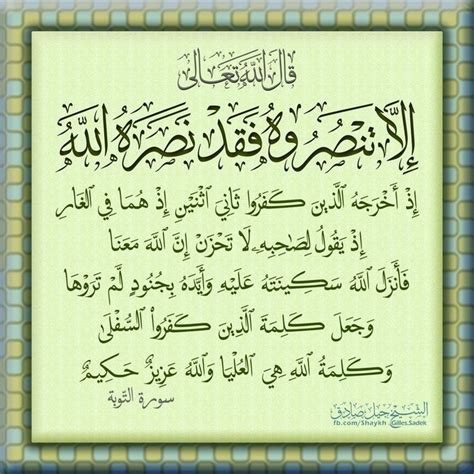 قَالَ اللَّهُ تَعَالَى
إِلَّا تَنْصُرُوهُ فَقَدْ نَصَرَهُ اللَّهُ
إِذْ أَخْرَجَهُ الَّذِينَ كَفَرُوا ثَانِيَ اثْنَيْنِ إِذْ هُمَا فِي الْغَارِ
إِذْ يَقُولُ لِصَاحِبِهِ لَا تَحْزَنْ إِنَّ اللَّهَ مَعَنَا
فَأَنْزَلَ اللَّهُ سَكِينَتَهُ عَلَيْهِ وَأَيَّدَهُ بِجُنُودٍ لَمْ تَرَوْهَا
وَجَعَلَ كَلِمَةَ الَّذِينَ كَفَرُوا السُّفْلَى
وَكَلِمَةُ اللَّهِ هِيَ الْعُلْيَا وَاللَّهُ عَزِيزٌ حَكِيمٌ
سورة التوبة
الشيخ جيل صادق
fb.com/Shaykh.Gilles.Sadek